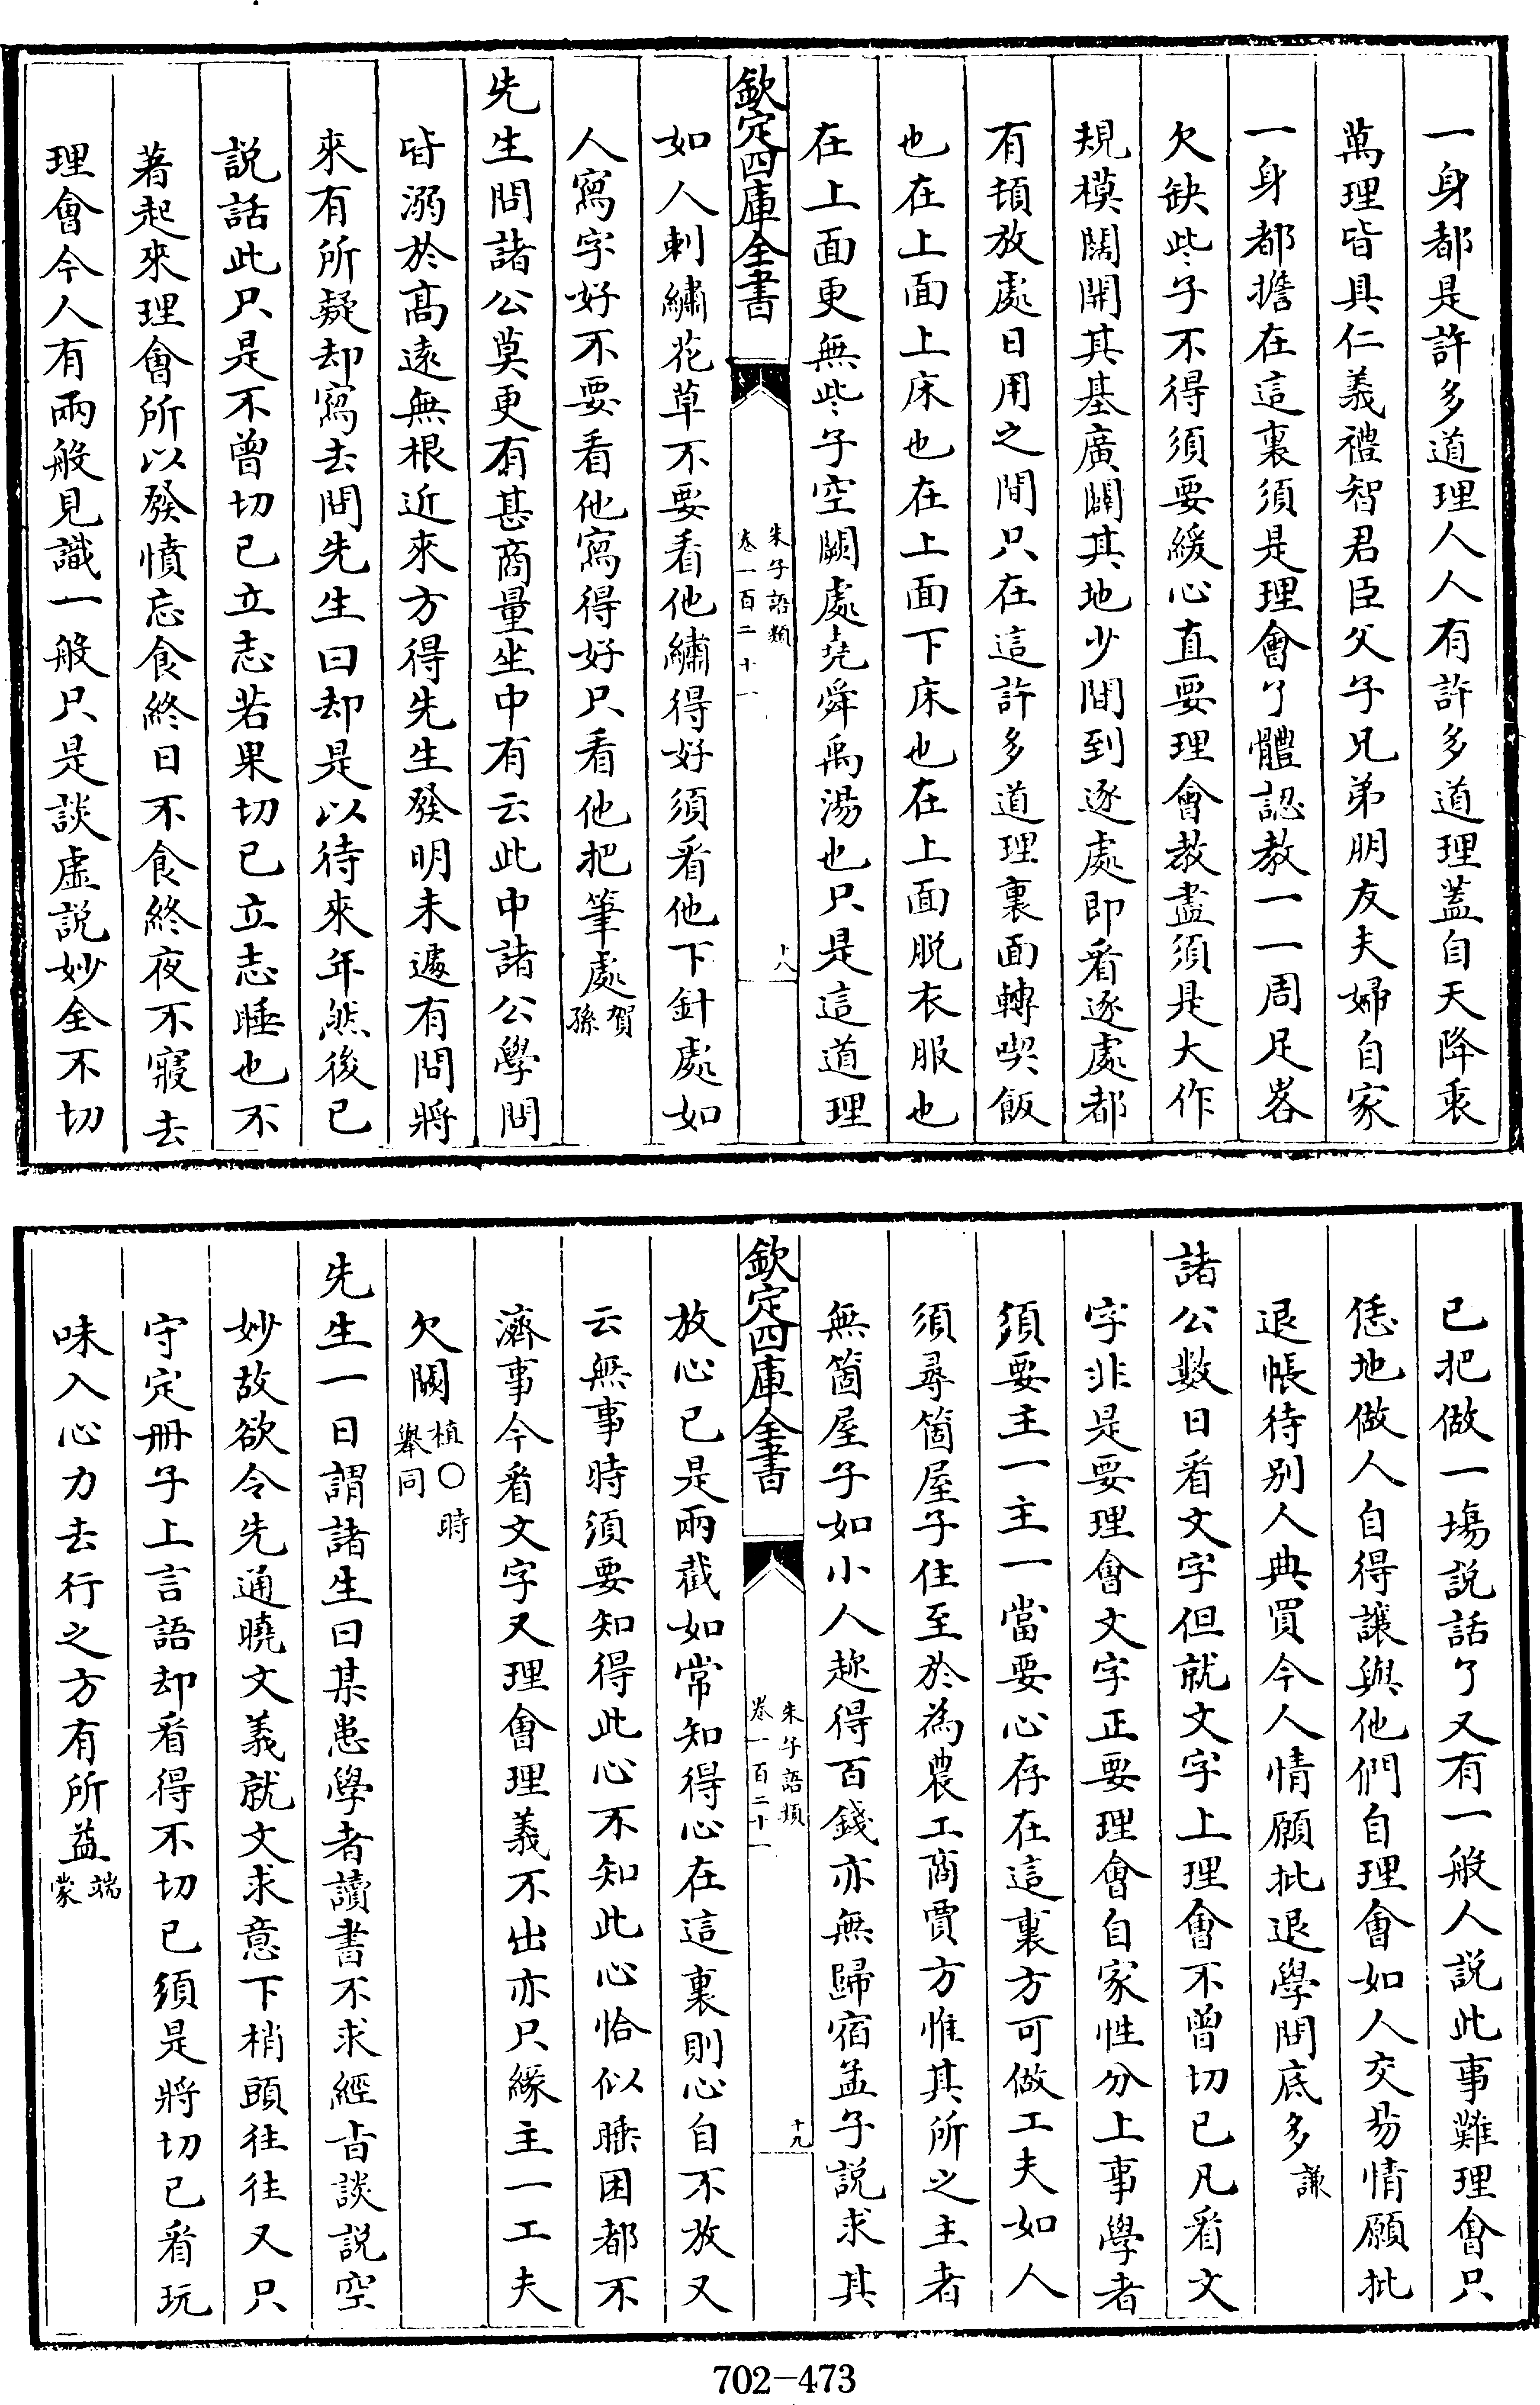 一身都是許多道理人人有許多道理蓋自天降衷
萬理皆具仁義禮智君臣父子兄弟朋友夫婦自家
一身都擔在這裏須是理會了體認教一一周足畧
欠缺些子不得須要緩心直要理會教盡須是大作
規模闊開其基廣闢其地少間到逐處即看逐處都
有頓放處日用之間只在這許多道理裏面轉喫飯
也在上面上床也在上面下床也在上面脱衣服也
在上面更無些子空闕處堯舜禹湯也只是這道理
欽定四庫全書
朱子語類
卷一百二十一
十八
如人刺繡花草不要看他繡得好須看他下針處如
人寫字好不要看他寫得好只看他把筆處賀
孫
先生問諸公莫更有甚商量坐中有云此中諸公學問
皆溺於髙逺無根近來方得先生發明未遽有問將
來有所疑却寫去問先生曰却是以待來年然後已
説話此只是不曾切已立志若果切已立志睡也不
著起來理會所以發憤忘食終日不食終夜不寢去
理會今人有兩般見識一般只是談虚説妙全不切
已把做一塲説話了又有一般人説此事難理會只
恁地做人自得讓與他們自理會如人交易情願批
退帳待别人典買今人情願批退學問底多謙
諸公數日看文字但就文字上理會不曾切已凡看文
字非是要理會文字正要理會自家性分上事學者
須要主一主一當要心存在這裏方可做工夫如人
須尋箇屋子住至於為農工商賈方惟其所之主者
無箇屋子如小人趂得百錢亦無歸宿孟子説求其
欽定四庫全書
朱子語類
卷一百二十一
十九
放心已是兩截如常知得心在這裏則心自不放又
云無事時須要知得此心不知此心恰似睡困都不
濟事今看文字又理會理義不出亦只緣主一工夫
欠闕植○時
舉同
先生一日謂諸生曰某患學者讀書不求經旨談説空
妙故欲令先通曉文義就文求意下梢頭往往又只
守定册子上言語却看得不切已須是將切已看玩
味入心力去行之方有所益端
蒙
702-473